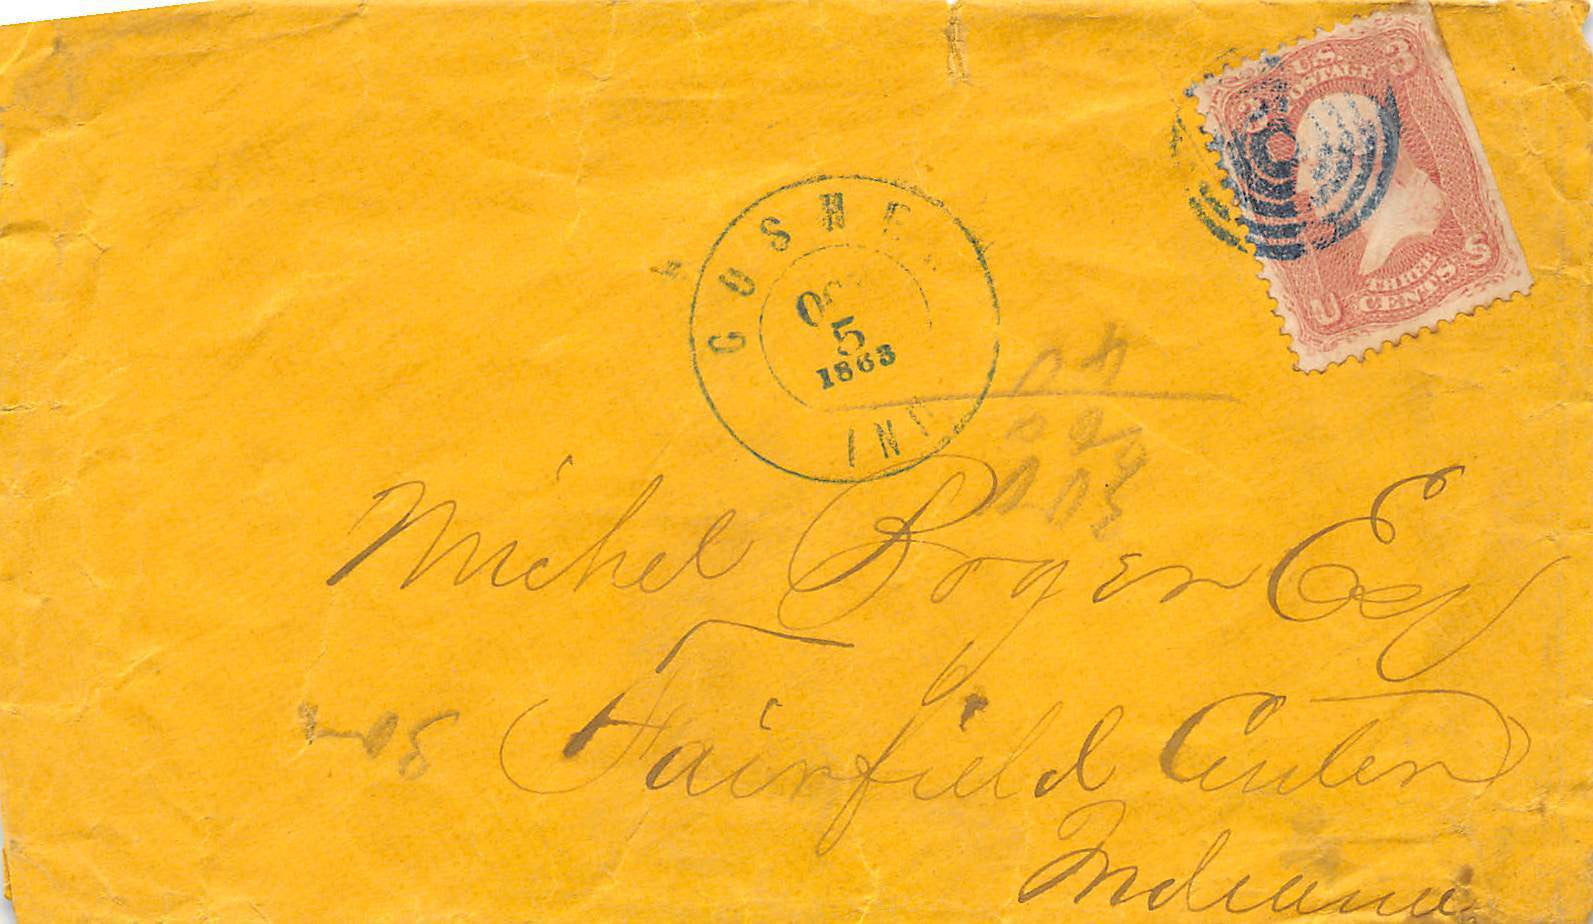 U.S. POSTAGE
3 3
U THREE CENTS S
GOSHEN
OCT
5
1863
IND
Michel Boger Esq
Fairfield Center
Indiana